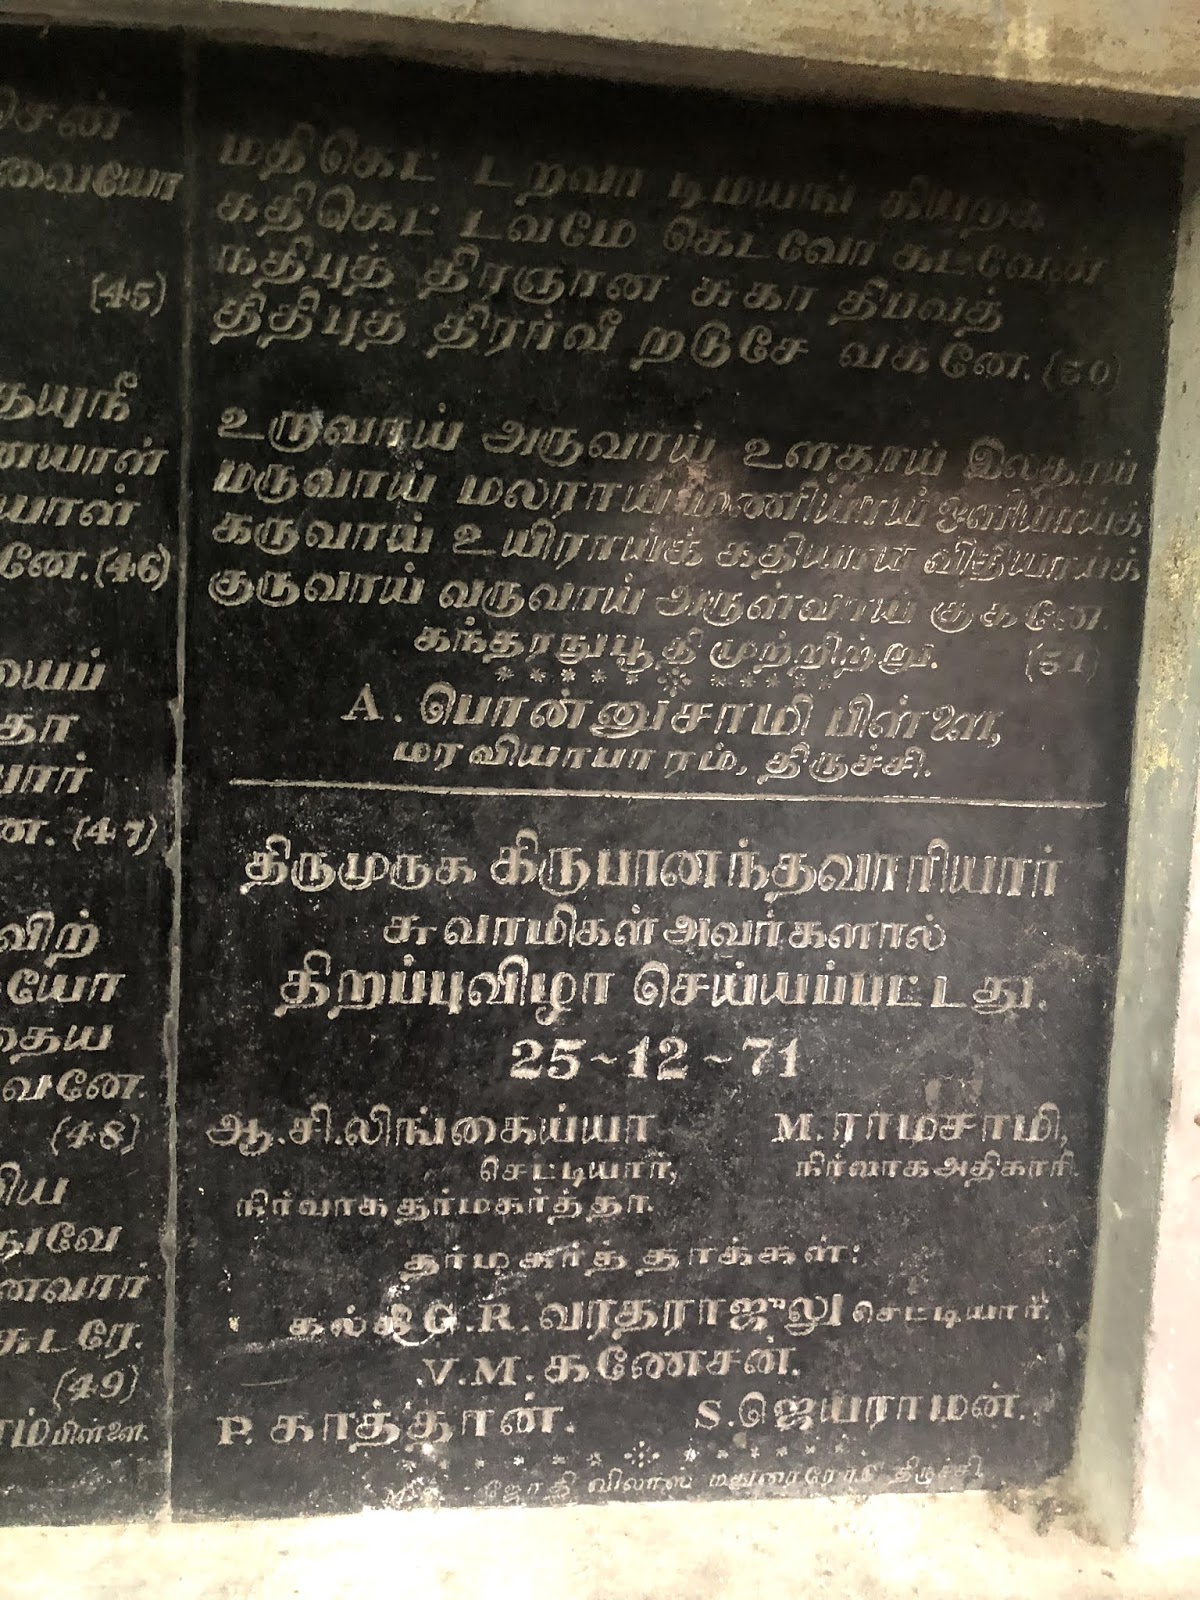 சென்
வையோ
(45)
தயுநீ
னையாள்
யாள்
னே.(46)
யைப்
தா
யார்
ன. (47)
விற்
யோ
தைய
வனே.
(48)
ரிய
நுவே
னவார்
சுடரே.
(49)
ாம்பிள்ளை.
மதிகெட் டறவா டிமயங் கியறக்
கதிகெட் டவமே கெடவோ கடவேன்
நதிபுத் திரஞான சுகா திபவத்
திதிபுத் திரர்வீ றடுசே வகனே. (50)
உருவாய் அருவாய் உளதாய் இலதாய்
மருவாய் மலராய் மணியாய் ஒளியாய்க்
கருவாய் உயிராய்க் கதியாய் விதியாய்க்
குருவாய் வருவாய் அருள்வாய் குகனே.
கந்தரநுபூதி முற்றிற்று. (51)
A. பொன்னுசாமி பிள்ளை,
மரவியாபாரம், திருச்சி.
திருமுருக கிருபானந்தவாரியார்
சுவாமிகள் அவர்களால்
திறப்புவிழா செய்யப்பட்டது.
25~12~71
ஆ.சி.லிங்கைய்யா
செட்டியார்,
நிர்வாகதர்மகர்த்தா.
M.ராமசாமி,
நிர்வாகஅதிகாரி.
தர்மகர்த்தாக்கள்:
கல்கி G.R.வரதராஜுலு செட்டியார்.
V.M.கணேசன்.
P.காத்தான். S.ஜெயராமன்.
ஜோதி விலாஸ் மதுரைரோடு திருச்சி.